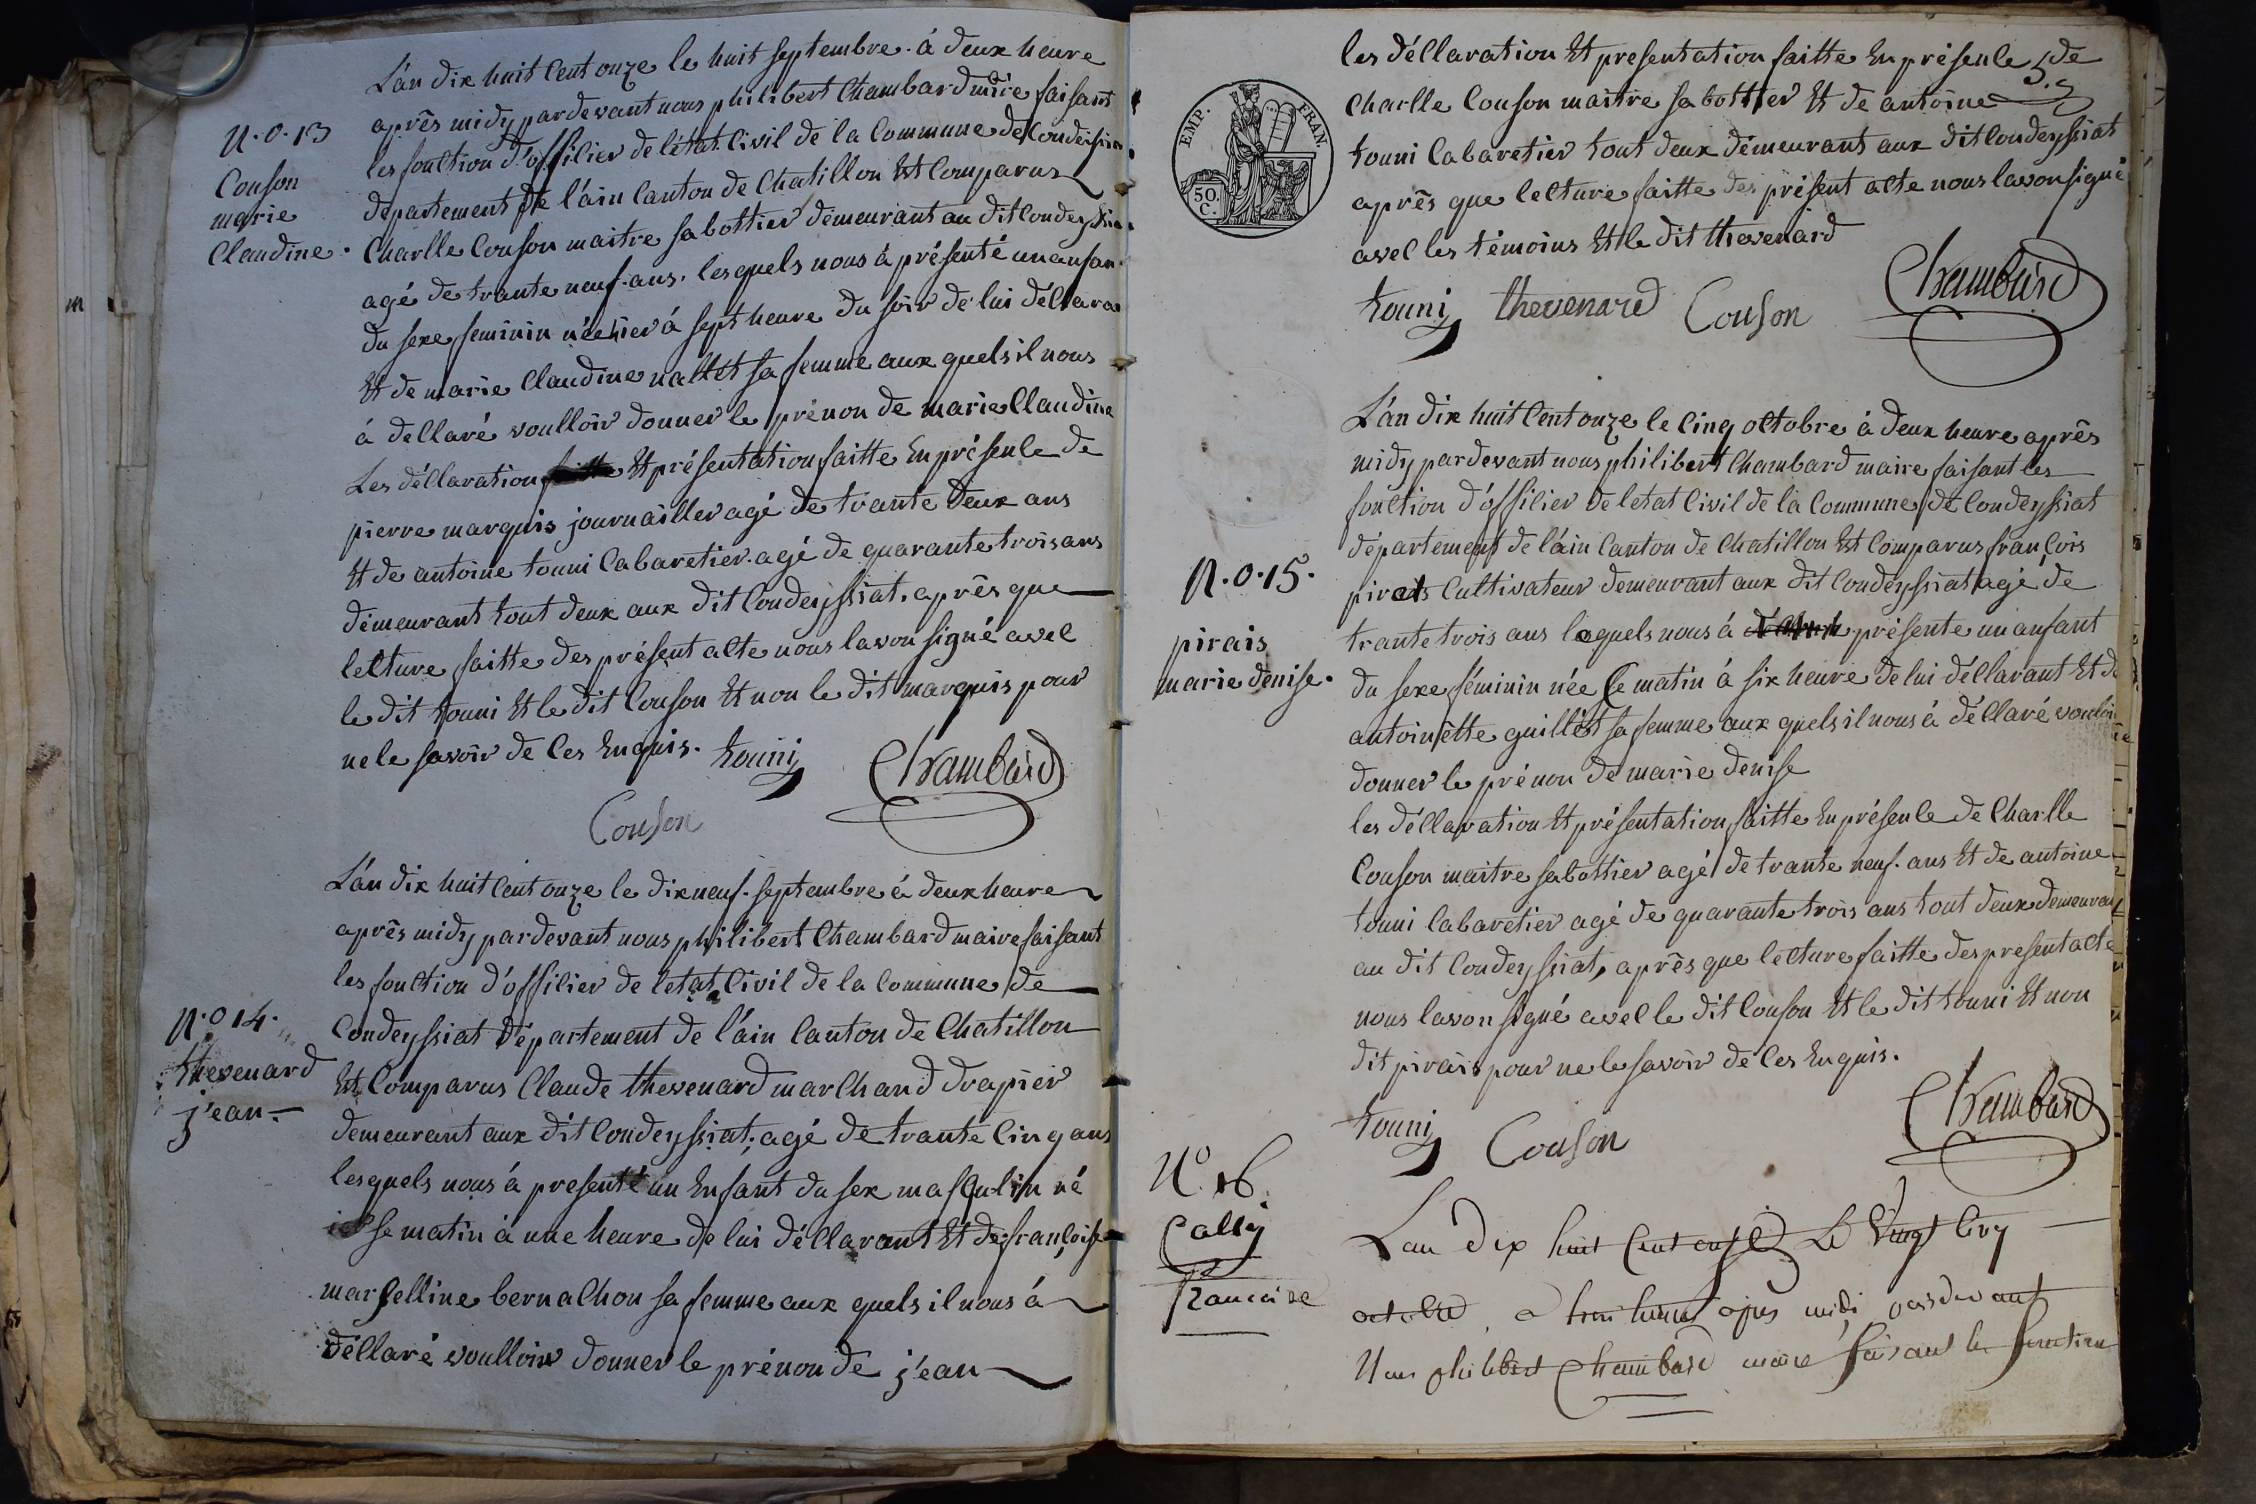 L'an dix huit Cent onze le huit septembre. á deux heure
après midy pardevant nous philibert Chambard mire faisant
les fonction d'offilier de létat Civil de la Commune de Condeissia
N.o.13
Couson
marie
Claudine.
département de l'áin Canton de Chatillon Est Comparus
Charlle Couson maitre sabottier démeurant au dit Condeyssia
agé de trante neuf. ans. lesquels nous á présenté un anfan
du sexe feminin née hier á sept heure du soir de lui déllara
Et de marie Claudine nallet sa femme aux quels il nous
á dellaré voulloir donner le prénon de marie Claudine
Les déllaration Et présentation faitte En présenle de
pierre marquis journailler agé de trante deux ans
Et de antoine touni Cabaretier. agé de quarante trois ans
démeurant tout deux aux dit Condeyssiat. après que
lelture faitte des présent alte nous lavon signé avel
le dit touni Et le dit Couson Et non le dit marquis pour
ne le savoir de Ces Enquis. touni Chambard
Couson
L'án dix huit Cent onze le dix neuf. septembre á deux heure
après midy pardevant nous philibert Chambard maire faisant
les fonltion d'offilier de letat Civil de la Commune de
N.o 14.
thevenard
j'ean.
Condeyssiat département de l'áin Canton de Chatillon
Est Comparus Claude thevenard marChand drapier
demeurant aux dit Condeyssiat; agé de trante Cinq ans
lesquels nous á presenté un Enfant du sex masqulin né
se matin á une heure de lui déllarant Et de françoise
marselline bernalhon sa femme aux quels il nous á
déllaré voulloir donner le prénon de j'ean
EMP. FRAN.
50. C.
les déllaration Et presentation faitte En présenle de
Charlle Couson maitre sabottier Et de antoine
touni Cabaretier tout deux démeurant aux dit Condeyssiat
après que lelture faitte des présent alte nous lavon signé
avel les témoins Et le dit thevenard
touni thevenard Couson Chambard
L'án dix huit Cent onze le Cinq oltobre á deux heure après
midy pardevant nous philibert Chambard maire faisant les
fonltion d'offilier de letat Civil de la Commune de Condeyssiat
département de l'áin Canton de Chatillon Est Comparus françois
N.o.15.
pirais
marie denise.
Cultivateur demeurant aux dit Condeyssiat agé de
trante trois ans lequels nous á présente un anfant
du sexe féminin née Ce matin á six heure de lui déllarant Et de
antoinette guillet sa femme aux quels il nous á déllaré vouloir
donner le prénon de marie denise
les déllaration Et présentation faitte En présenle de Charlle
Couson maitre sabottier agé de trante neuf. ans Et de antoine
touni Cabaretier agé de quarante trois ans tout deux demeuran
au dit Condeyssiat, après que lelture faitte des present alte
nous lavon signé avel le dit Couson Et le dit touni Et non
dit pirais pour ne le savoir de Ces Enquis.
touni Couson Chambard
No. 16.
francoise
L'an dix huit Cent onze Le Vingt Cinq
octobre, a trois heures après midi pardevant
Nous philibert Chambard maire faisant les fonction